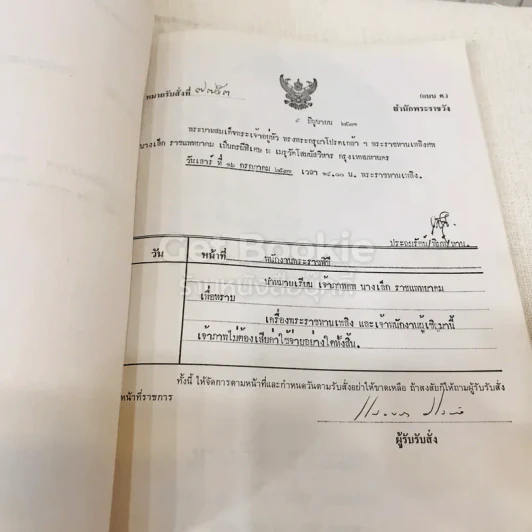 หมายรับสั่งที่
(แบบ ค.)
สำนักพระราชวัง
๙ มิถุนายน ๒๕๓๓
พระบาทสมเด็จพระเจ้าอยู่หัว ทรงพระกรุณาโปรดเกล้า ฯ พระราชทานเพลิงศพ
นางเจ็ก ราชแพทยาคม เป็นกรณีพิเศษ ณ เมรุวัดโสมนัสวิหาร กรุงเทพมหานคร
วันเสาร์ ที่ กรกฎาคม ๒๕๓๓ เวลา น. พระราชทานเพลิง.
วัน
หน้าที่
พนักงานพระราชพิธี
นำหมายเรียน เจ้าภาพศพ นางเจ็ก ราชแพทยาคม
เพื่อทราบ
เครื่องพระราชทานเพลิง และเจ้าพนักงานผู้เชิญมานี้
เจ้าภาพไม่ต้องเสียค่าใช้จ่ายอย่างใดทั้งสิ้น.
ทั้งนี้ ให้จัดการตามหน้าที่และกำหนดวันตามรับสั่งอย่าให้ขาดเหลือ ถ้าสงสัยก็ให้ถามผู้รับรับสั่ง
หน้าที่ราชการ
ผู้รับรับสั่ง
Get Bookie